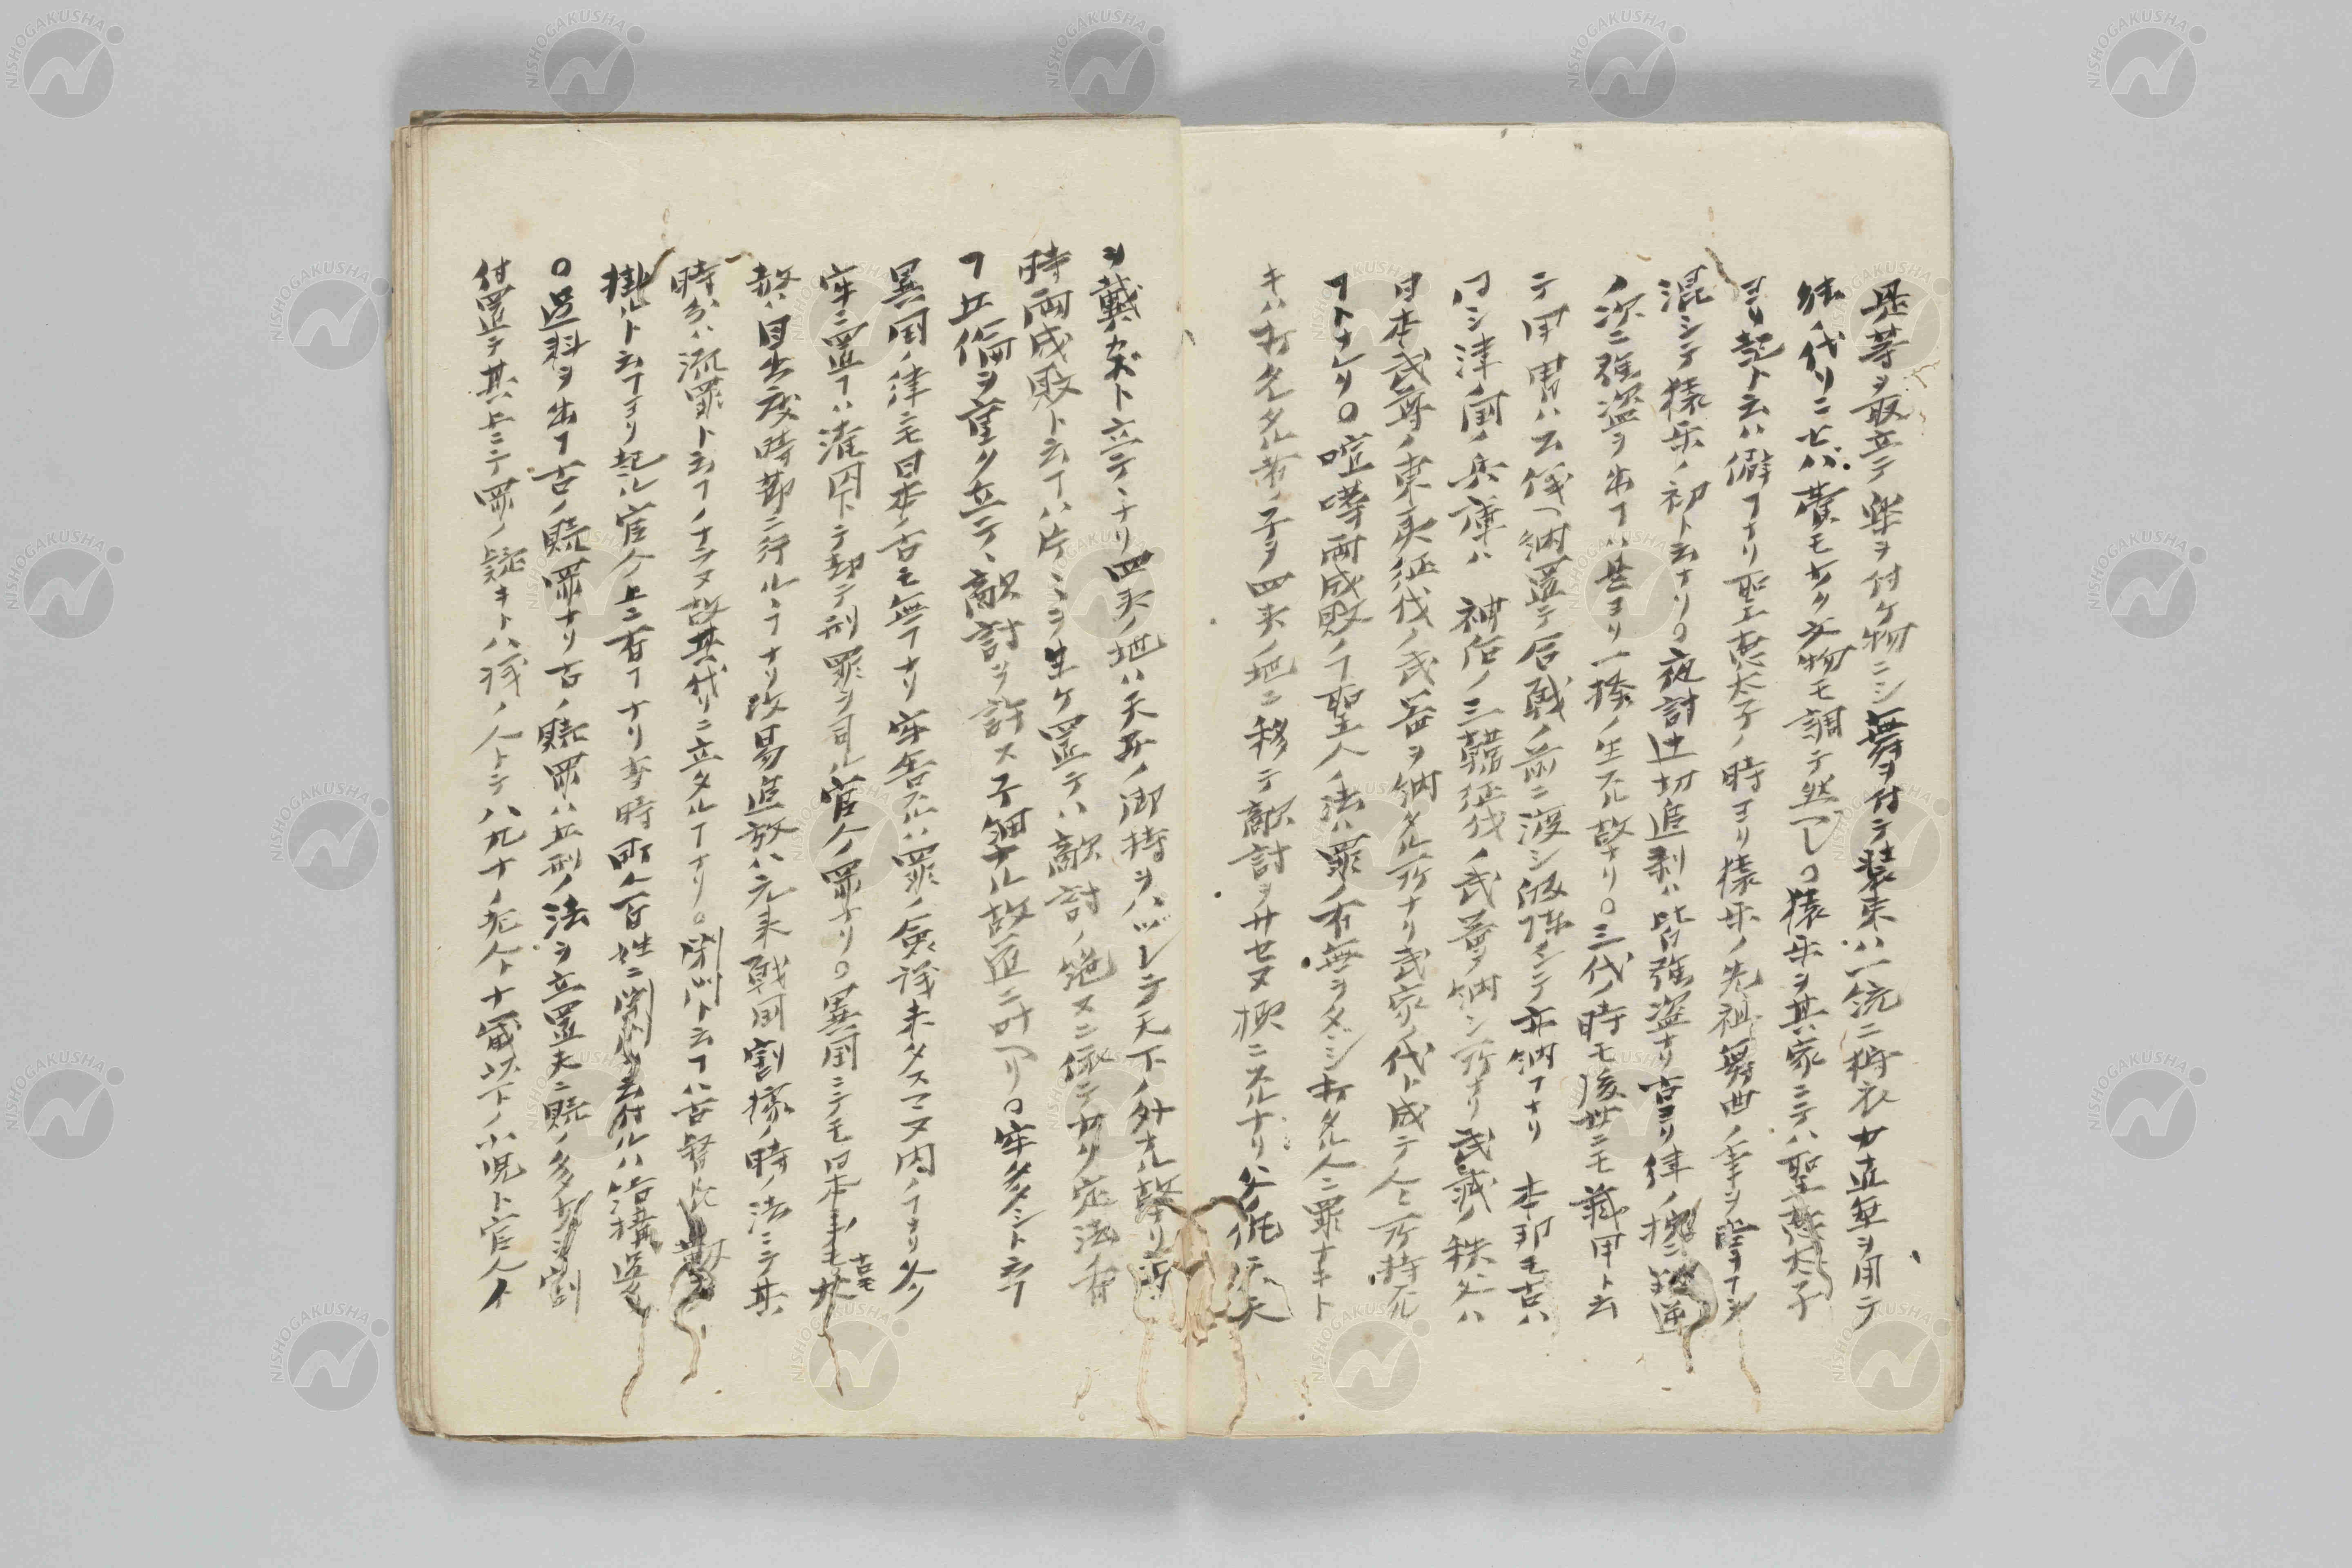 是等ヲ取立テ楽ヲ付ケ物ニシ舞ヲ付テ装束ハ一統ニ狩衣カ直垂ヲ用テ
能代リニセバ費モナク文物モ調テ然ヿシ○猿樂ヲ其家ニテハ聖徳太子
ヨリ起ト云ハ僻ヿナリ聖徳太子ノ時ヨリ猿楽ノ先祖舞曲ノ
混シテ猿楽ノ初ト云ナリ○夜討辻切追剥ハ皆強盗ナリ古ヨリ律ノ
ノ次ニ強盗ヲ出ヿハ是ヨリ一揆ノ生スル故ナリ○三代ノ時モ後世ニモ蔵甲ト云
テ甲冑ハ公儀ヘ納置テ合戦ノ前ニ渡シ帰陣シテ亦納ヿナリ 本邦モ古ハ
同シ津ノ国ノ兵庫ハ 神后ノ三韓征伐ノ武器ヲ納シ所ナリ武蔵ノ秩父ハ
日本武尊ノ東夷征伐ノ武器ヲ納タル所ナリ武家ノ代ト成テ人々所持スル
ヿトナレリ○喧嘩両成敗ノヿ聖人ノ法ハ罪ノ有無ヲタヾシ打タル人ニ罪ナキト
キハ打タル者ノ子ヲ四夷ノ地ニ移テ敵討ヲサセヌ様ニスルナリ父ノ仇ハ天
ヲ戴カズト立テヽナリ四夷ノ地ハ天子ノ御持ヲハヅレテ天下ノ外ナル故ナリ近
時両成敗ト云ヿハ片々ヲ生ケ置テハ敵討ノ絶ヌニ依テナリ定法有
ヿ五倫ヲ重ク立テヽ敵討ヲ許ス子細ナル故道ニ叶ヘリ○牢多シト云ヿ
異国ノ律ニモ日本ノ古モ無ヿナリ牢舎スルハ罪ノ僉議未タスマヌ内ノヿナリ久ク
牢ニ置ヿハ滝囚トテ却テ刑罪ヲ司ル官人ノ罪ナリ○異国ニテモ日本ニモ古モ大
赦ハ目出度時節ニ行ルヽヿナリ改易追放ハ元来戦国割拠ノ時ノ法ニテ其
時分ハ流罪ト云ヿノナラヌ故其代リニ立タルヿナリ○閉門ト云ヿハ古
掛ルト云ヿヨリ起ル官人ノ上ニ有ヿナリ当時町人百姓ニ閉門ヲ云付ルハ
○過料ヲ出ヿ古ノ贖罪ナリ古ノ贖罪ハ五刑ノ法ヲ立置夫ニ贖ノ多少ヲ割
付置テ其上ニテ罪ノ疑キト八議ノ人トテ八九十ノ老人ト十歳以下ノ小児ト官人ト